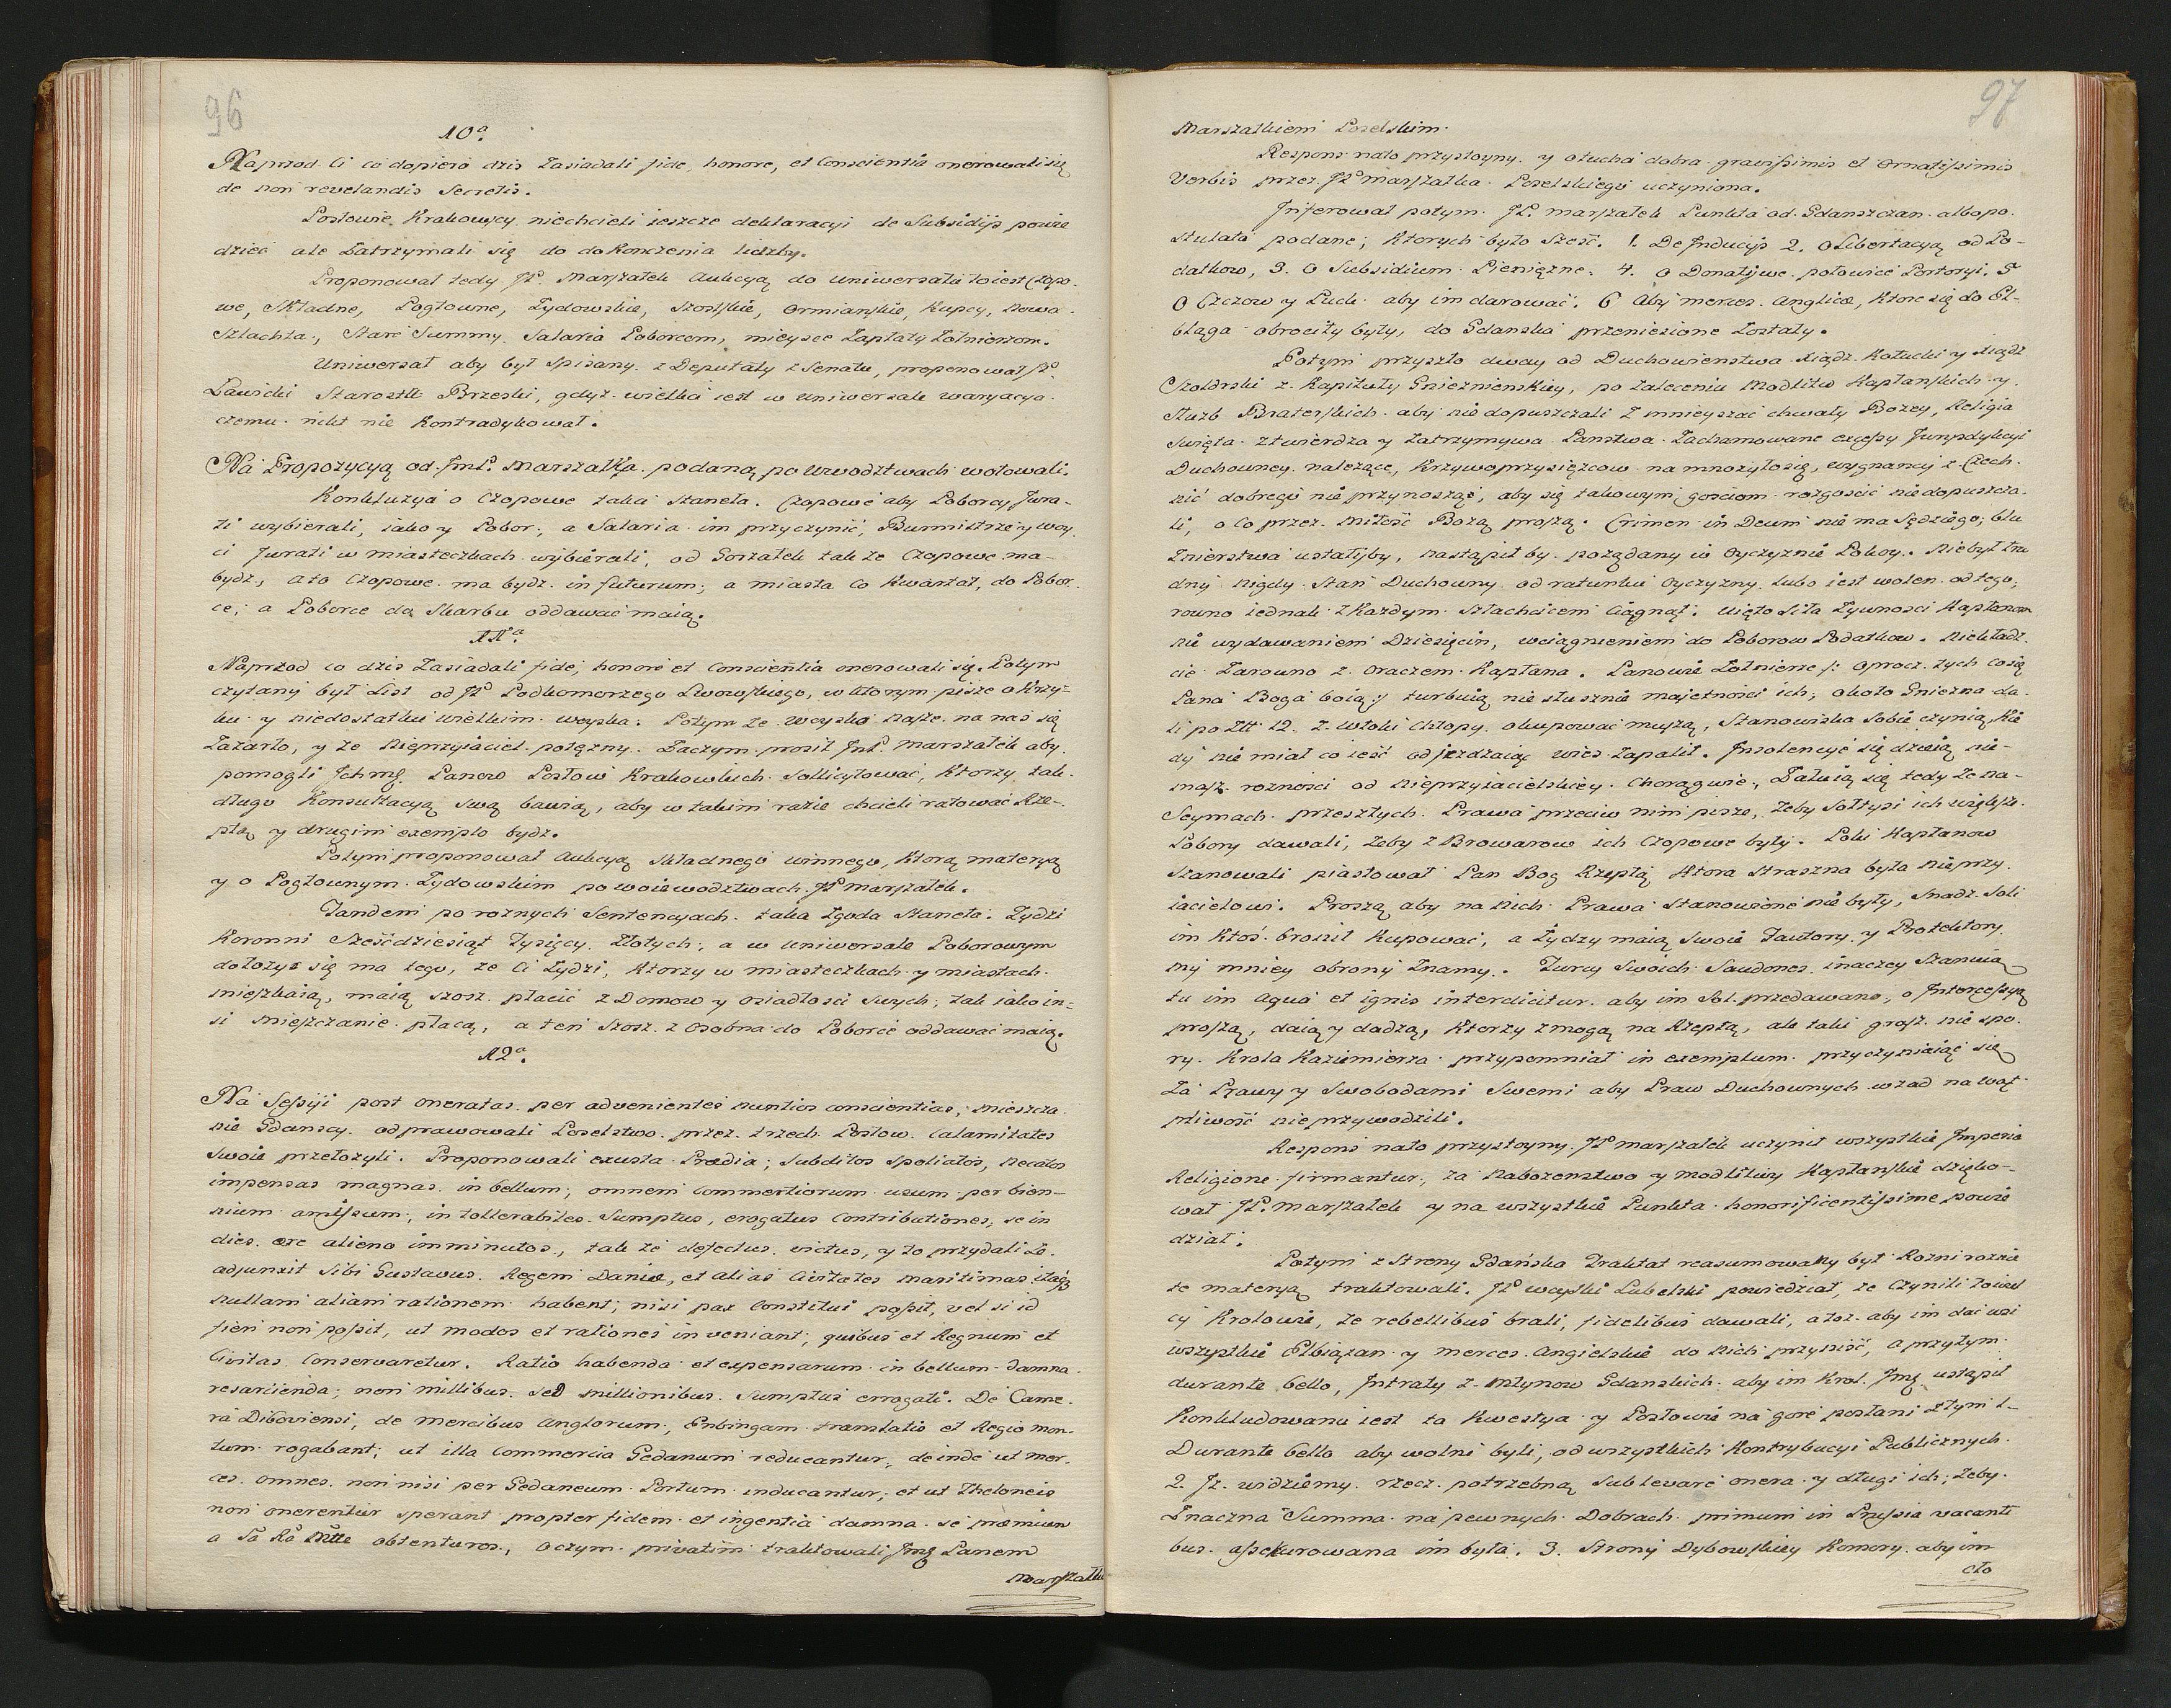 96
10ª.
Naprzod Ci co dopiero dzis Zasiadali fide, honore, et Conscientia onerowali się
de non revelandis Secretis.
Posłowie Krakowscy niechcieli ieszcze deklaracyi de Subsidijs powie
dzieć ale Zatrzymali się do dokonczenia liczby.
Proponował tedy JP. Marszałek Aukcyą do Uniwersału to iest Czopo-
we, Składne, Pogłowne, Zydowskie, Szostskie, Ormianskie, Kupcy, Nowa
Szlachta, Stare Summy Salaria Poborcom, mieysce Zapłaty Zołnierzom.
Uniwersał aby był spisany z Deputaty z Senatu, proponował JP.
Sawicki Starosta Brzeski, gdyż wielka iest w Uniwersale waryacya
czemu nikt nie Kontradykował.
Na Propozycyą od JmP. Marszałka podaną po Wwodztwach wotowali.
Konkluzya o Czopowe taka Staneła. Czopowe aby Poborcy Jura-
ti wybierali, iako y Pobor, a Salaria im przyczynić, Burmistrze y woy
ci Jurati w miasteczkach wybierali, od Gorzałek takze Czopowe ma
bydz, a to Czopowe ma bydz in futurum; a miasta Co Kwartał, do Pobor
ce; a Poborce do Skarbu oddawać maią.
11ª.
Naprzod co dzis Zasiadali fide, honore et Conscientia onerowali się. Potym
czytany był List od JP Podkomorzego Lwowskiego, w ktorym pisze o Krzy-
ku y niedostatku wielkim woyska. Potym ze woysko nasze na nas się
Zażarło, y ze Nieprzyiaciel potęzny. Zaczym prosił JmP. Marszałek aby
pomogli Ichmę Panow Posłow Krakowskich sollicytować, Ktorzy tak
długo Konsultacyą swą bawią, aby w takim razie chcieli ratować Rze-
pltą y drugim exemplo bydz.
Potym proponował Aukcyą Składnego winnego, Ktorą materyą
y o Pogłownym Zydowskim po woiewodztwach JP marszałek.
Tandem po roznych Sentencyach taka Zgoda Staneła. Zydzi
Koronni Sześćdziesiąt Tysięcy Złotych; a w Uniwersale Poborowym
dołozyc się ma tego, ze Ci Zydzi, Ktorzy w miasteczkach y miastach
mieszkaią, maią szosz płacić z Domow y osiadłosci Swych; tak iako in-
si mieszczanie płacą, a ten Szosz z osobna do Poborce oddawać maią.
12ª.
Na Sessyi post oneratas per advenientes nuntios conscientias, mieszcza
nie Gdanscy odprawowali Poselstwo przez trzech Posłow. Calamitates
swoie przełozyli. Proponowali exusta Prædia; Subditos spoliatos, necatos
impensas magnas in bellum; omnem Commertiorum usum per bien-
nium amissum; in tollerabiles Sumptus, erogatus Contributiones, se in
dies ære alieno imminutos, tak ze defectus victus, y to przydali ze
adjunxit sibi Gustavus Regem Daniæ, et alias Civitates maritimas, itaq
nullam aliam rationem habent; nisi pax Constitui possit, vel si id
fieri non possit, ut modos et rationes inveniant; quibus et Regnum et
Civitas Conservaretur. Ratio habenda et expensarum in bellum damna
resarcienda; non millibus sed millionibus Sumptus erragati. De Came-
ra Diboviensi, de mercibus Anglorum, Enbingam translatio et Regio mon-
tum rogabant; ut illa Commercia Gedanum reducantur; deinde ut mer-
ces omnes non nisi per Gedaneum Portum inducantur; et ut Theloneis
non onerentur sperant propter fidem et ingentia damna se præmium
a Sa Ra Mtte obtenturos, o czym privatim traktowali Jmę Panem
Marszałki

97
Marszałkiem Poselskim.
Respons nato przystoyny y otucha dobra gravissimis et ornatissimis
Verbis przez JP marszałka Poselskiego uczyniona.
Inferował potym JP. marszałek Punkta od Gdanszczan albo po-
stulata podane; Ktorych było Sześć. 1. De Inducijs 2. o Libertacyą od Po-
datkow, 3. o Subsidium Pieniężne. 4. o Donatywe połowice Portoryi. 5
o Czczow y Puck aby im darować. 6 Aby merces Anglicæ, Ktore się do El-
bląga obrociły były, do Gdanska przeniesione Zostały.
Potym przyszło dway od Duchowienstwa Xiądz Kołucki y Xiądz
Szołdrski z Kapituły Gnieznienskiey, po zaleceniu Modlitw Kapłanskich y
Służb Braterskich aby nie dopuszczali Zmnieyszać chwały Bozey, Religia
Swięta ztwierdza y Zatrzymywa Panstwa. Zachamowane excessy Jurysdykcyi
Duchowney nalezące, Krzywoprzysięzcow namnozyłosię, wygnancy z Czech
nic dobrego nie przynoszą, aby się takowym gosciom rozgoscić nie dopuszcza
li, o Co przez Miłość Bozą proszą. Crimen in Deum nie ma Sędziego; blu
znierstwa ustałyby, nastąpił by pożądany w Oyczyznie Pokoy. Niebył tru
dny nigdy Stan Duchowny od ratunku Oyczyzny lubo iest wolen od tego;
rowno iednak z Kazdym Szlachcicem Ciągnął. Uięto Siła Zywnosci Kapłanom
nie wydawaniem Dziesięcin, wciągnieniem do Poborow Podatkow. Niekładz
cie Zarowno z oraczem Kapłana. Panowie Zołnierze /: oprocz tych co się
Pana Boga boią :/ turbuią nie słusznie maietnosci ich; około Gniezna da
li po Zł 12. z włoki Chłopy okupować muszą, Stanowiska Sobie czynią, Kie
dy nie miał co ieść odjezdzaiąc wies zapalił. Insolencye się dzieią nie-
masz roznosci od Nieprzyiacielskiey Chorągwie. Zaluią się tedy ze na
Seymach przeszłych Prawa przeciw nim pisze, zeby Sołtysi ich większe
Pobory dawali, zeby z Browarow ich Czopowe były. Poki Kapłanow
szanowali piastował Pan Bog Rzeptą Ktora straszna była nieprzy
iacielowi. Proszą aby na nich Prawa Stanowione nie były, Snadz Soli
im Ktoś bronił Kupować, a Zydzy maią Swoie Fautory y Protektory
my mniey obrony Znamy. Turcy Swoich Saudones inaczey szanuią
tu im aqua et ignis interdicitur aby im Sol przedawano, o Intercessyą
proszą, daią y dadzą, Ktorzy zmogą na Rzeptą, ale taki grosz nie spo
ry. Krola Kazimierza przypomniał in exemplum przyczyniaiąc się
Za Prawy y Swobodami Swemi aby Praw Duchownych wzad na wąt
pliwość nieprzywodzili.
Respons nato przystoyny JP marszałek uczynił wszystkie Imperia
Religione firmantur, za nabozenstwo y modlitwy Kapłanskie dzięko-
wał JP. marszałek y na wszystkie Punkta honorificentissime powie
dział.
Potym z Strony Gdańska Traktat reasumowany był Rozni roznie
te materyą traktowali. JP woyski Lubelski powiedział, ze Czynili to wsz
cy Krolowie, ze rebellibus brali, fidelibus dawali, a toz aby im dać wsi
wszystkie Elbiązan y merces Angielskie do nich przynieść, a przytym
durante bello, Intraty z Młynow Gdanskich aby im Krol Jmę ustąpił
Konkludowana iest ta Kwestya y Posłowie na gore posłani z tym 1-
Durante bello aby wolni byli, od wszystkich Kontrybucyi Publicznych
2. Iz widziemy rzecz potrzebną Sublevare onera y długi ich; zeby
Znaczna Summa na pewnych Dobrach primum in Prussia vacanti
bus assekurowana im była. 3. Strony Dybowskiey Komory aby im
cło